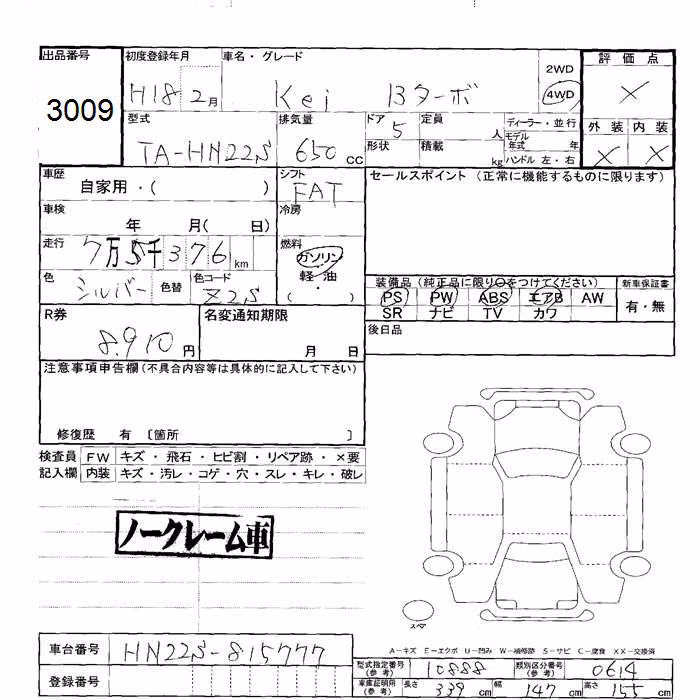 出品番号 初度登録年月 車名・グレード 評価点
3009 H18 2月 Kei Bターボ 2WD 4WD ×
型式 排気量 ドア 定員 ディーラー・並行 外装 内装
TA-HN22S 650 CC 5 人 モデル年式 年 × ×
形状 積載 kg ハンドル 左・右
車歴 シフト セールスポイント (正常に機能するものに限ります)
自家用・( ) FAT
車検 冷房
年 月( 日)
走行 燃料
7万5千376km ガソリン
軽・油
色 色替 色コード ・
シルバー Z2S ( )
装備品 (純正品に限り○をつけてください) 新車保証書
PS PW ABS エアB AW 有・無
SR ナビ TV カワ
R券 名変通知期限 後日品
8,910 円 月 日
注意事項申告欄 (不具合内容等は具体的に記入して下さい)
修復歴 有 〔箇所 〕
検査員 FW キズ・飛石・ヒビ割・リペア跡・×要
記入欄 内装 キズ・汚レ・コゲ・穴・スレ・キレ・破レ
ノークレーム車
スペア
A-キズ E-エクボ U-凹み W-補修跡 S-サビ C-腐食 XX-交換済
車台番号 HN22S-815777
登録番号
型式指定番号(参考) 10888 類別区分番号(参考) 0614
車庫証明用(参考) 長さ 339 cm 幅 147 cm 高さ 155 cm